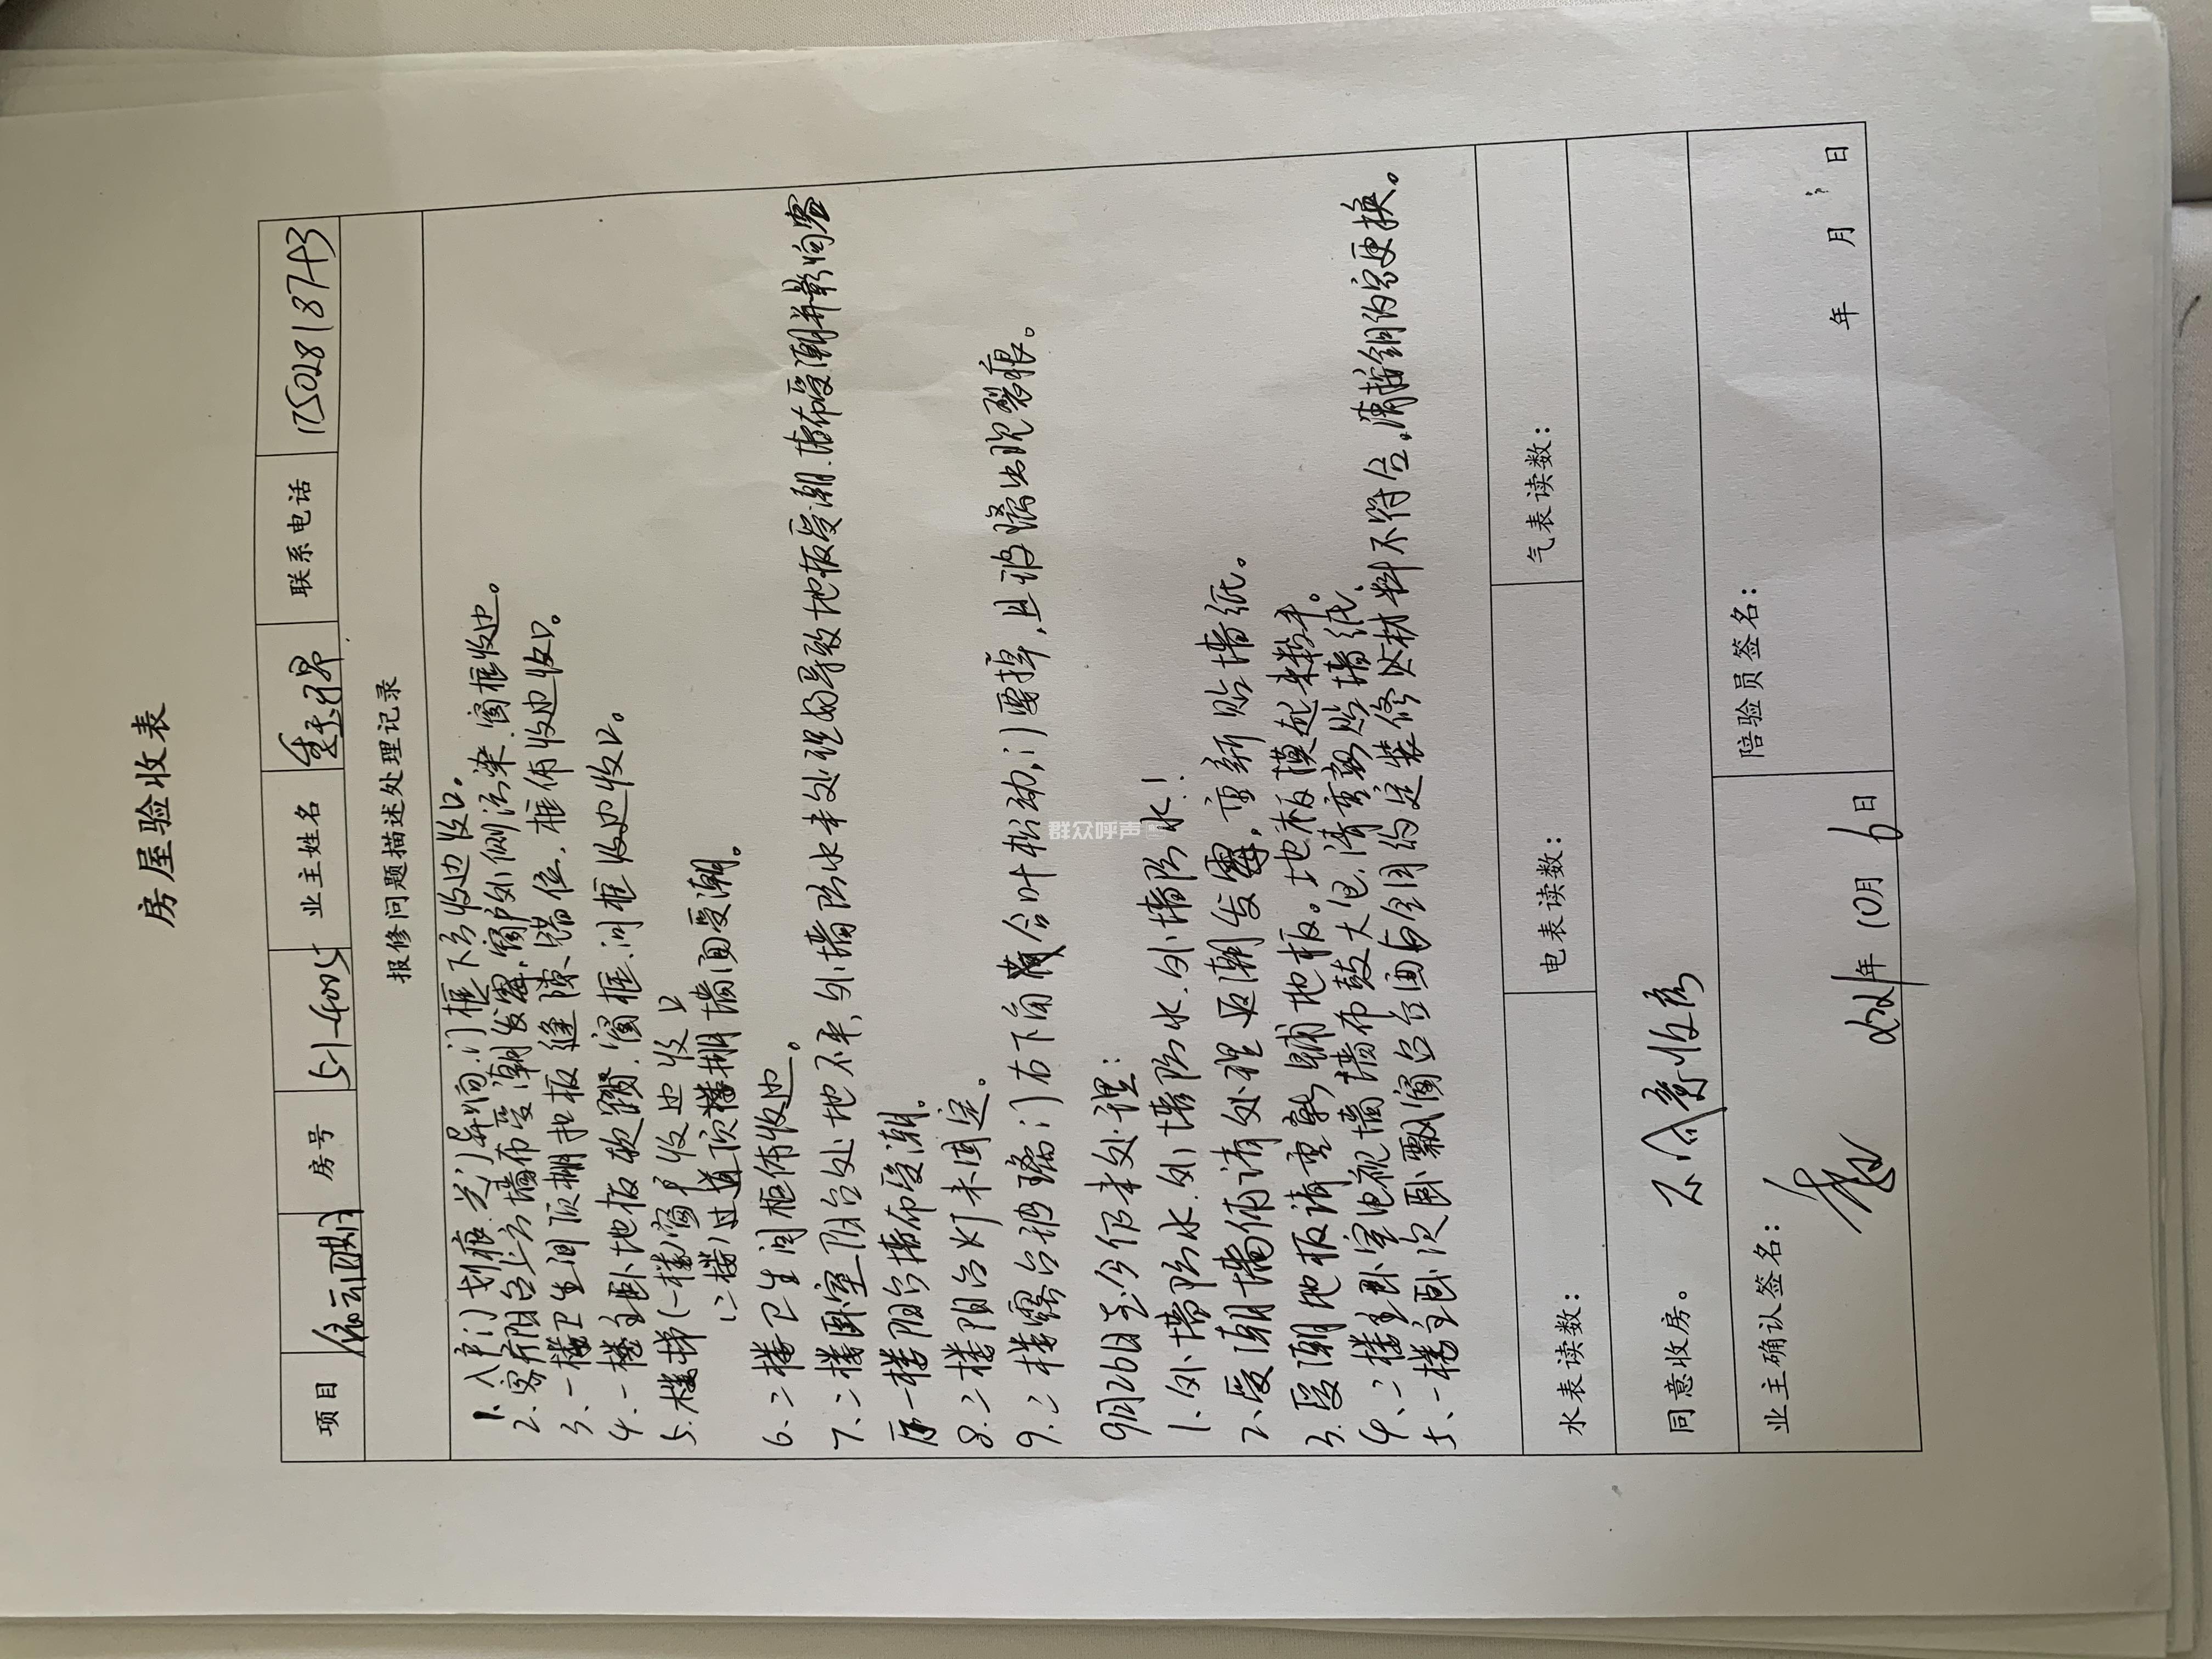 房屋验收表
项目 房号 5-1-4005 业主姓名 联系电话 17502818743
报修问题描述处理记录
1、入户门划痕、关门异响、门框下方收边收口。
2、客厅阳台上方墙布受潮发霉、窗户外侧污染、窗框收边。
3、一楼卫生间顶棚扣板缝隙、错位、框体收边收口。
4、一楼主卧地板软蹋、窗框、门框收边收口。
5、楼梯(一楼)窗户收边收口
(二楼)过道顶棚墙面受潮。
6、二楼卫生间柜体收边。
7、二楼卧室阳台处地不平,外墙防水未处理好导致地板受潮、墙布受潮并影响客
厅一楼阳台墙布受潮。
8、二楼阳台灯未固定。
9、二楼露台玻璃门右下角合叶松动,门要掉,且玻璃出现裂痕。
9月26日至今仍未处理:
1、外墙防水、外墙防水、外墙防水!
2、受潮墙体请处理返潮发霉,重新贴墙纸。
3、受潮地板请重新铺地板。地板摸起来粘手。
4、二楼主卧室电视墙墙布鼓大包,请重新贴墙纸
5、一楼主卧次卧飘窗台台面与合同约定装修风材料不符合,请按合同约定更换。
水表读数: 电表读数: 气表读数:
同意收房。 不同意收房
业主确认签名: 2021年10月6日 陪验员签名: 年 月 日
群众呼声